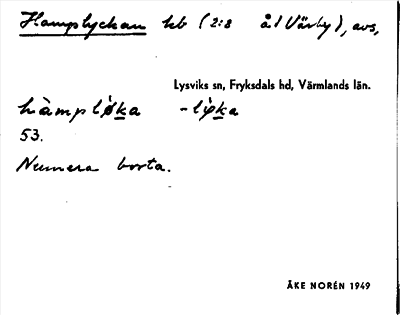 Hamplyckan hb (2:8 å l Värby), avs,
Lysviks sn, Fryksdals hd, Värmlands län.
hàmpløka -løka
53.
Numera borta.
ÅKE NORÉN 1949